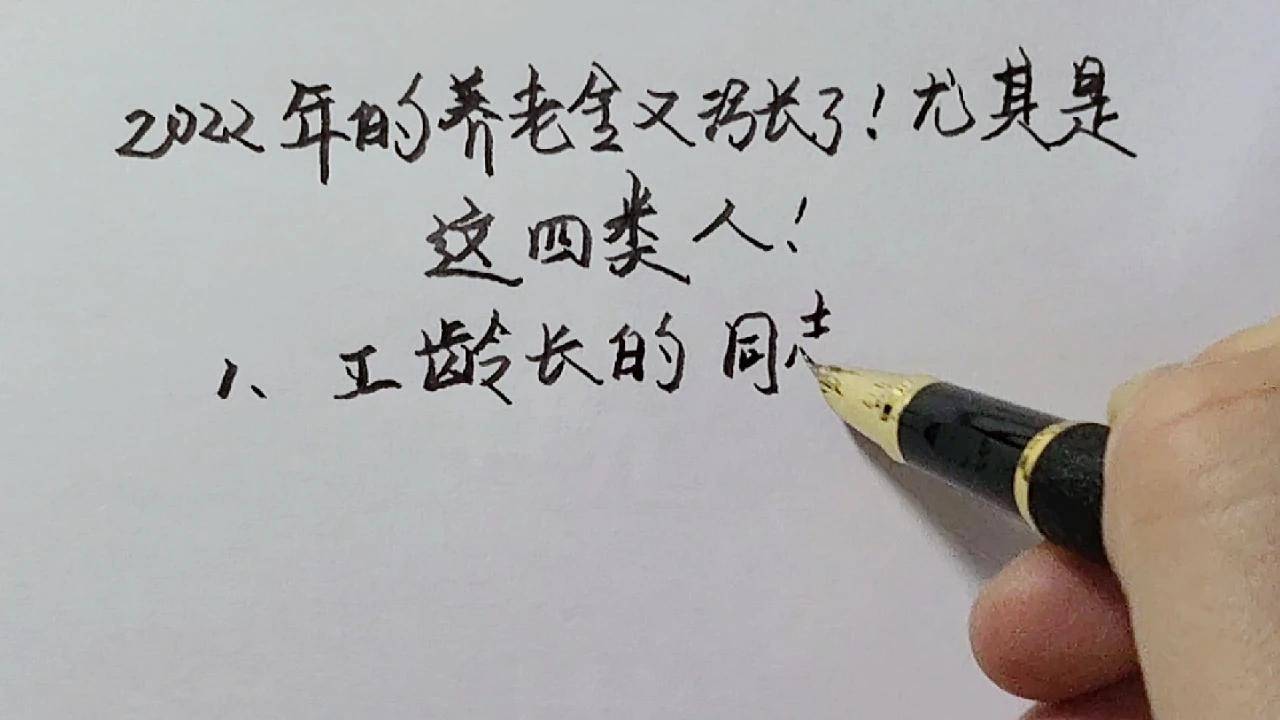 2022年的养老金又涨长了!尤其是
这四类人!
1、工龄长的同志